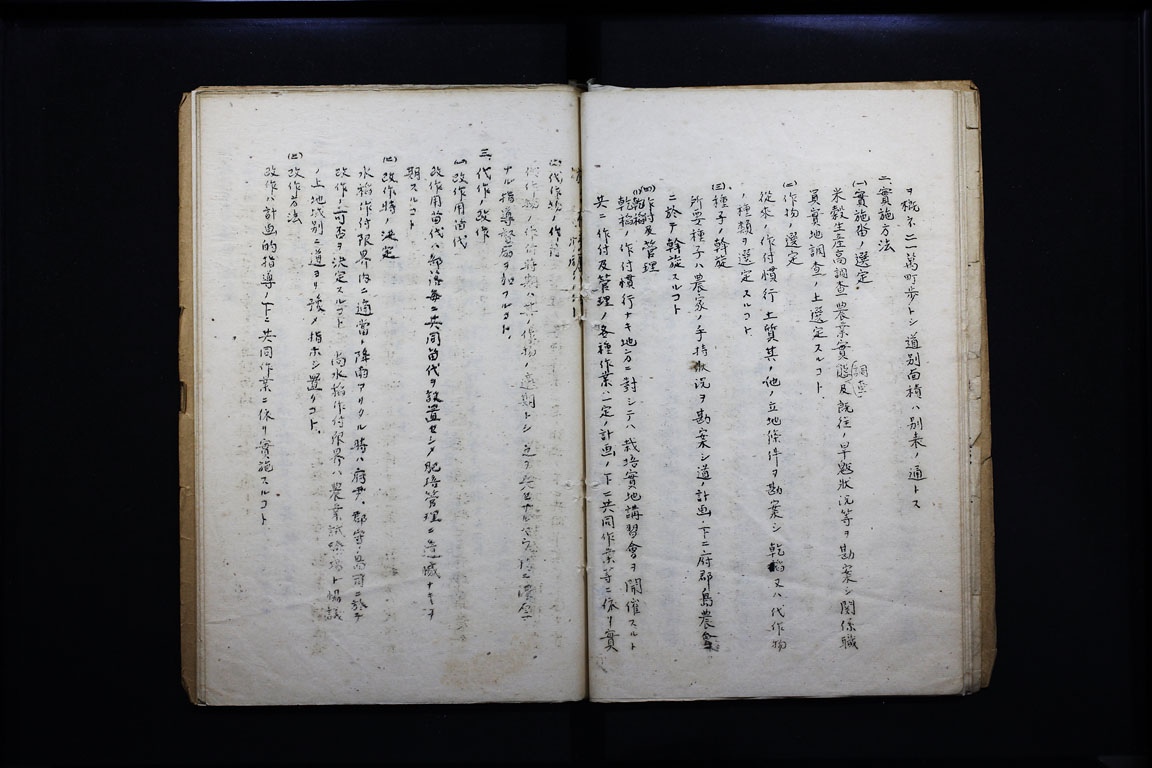 ヲ概ネ二一萬町歩トシ道別面積ハ別表ノ通トス
二、實施方法
(一)實施畓ノ選定
米穀生産高調査農業實態調査及既往ノ旱魃狀況等ヲ勘案シ関係職
員實地調査ノ上選定スルコト
(二)作物ノ選定
從來ノ作付慣行土質其ノ他ノ立地條件ヲ勘案シ乾稻又ハ代作物
ノ種類ヲ選定スルコト
(三)種子ノ斡旋
所要種子ハ農家ノ手持狀況ヲ勘案シ道ノ計画ノ下ニ府郡島農會
ニ於テ斡旋スルコト
(四)作付及管理
(1)乾稻
乾稻ノ作付慣行ナキ地方ニ対シテハ栽培實地講習會ヲ開催スルト
共ニ作付及管理ノ各種作業ハ一定ノ計画ノ下ニ共同作業等ニ依リ實
(2)代作物ノ作付
代作物ノ作付時期ハ其ノ作物ノ適期トシ
ナル指導督励ヲ加フルコト
三、代作ノ改作
(一)改作用苗代
改作用苗代ハ部落毎ニ共同苗代ヲ設置セシメ肥培管理ニ遺憾ナキヲ
期スルコト
(二)改作時ノ決定
水稻作付限界内ニ適當ノ降雨アリタル時ハ府尹、郡守、島司ニ於テ
改作ノ可否ヲ決定スルコト 尚水稻作付限界ハ農業試験場ト協議
ノ上地域別ニ道ヨリ豫メ指示シ置クコト
(三)改作方法
改作ハ計画的指導ノ下ニ共同作業ニ依リ實施スルコト